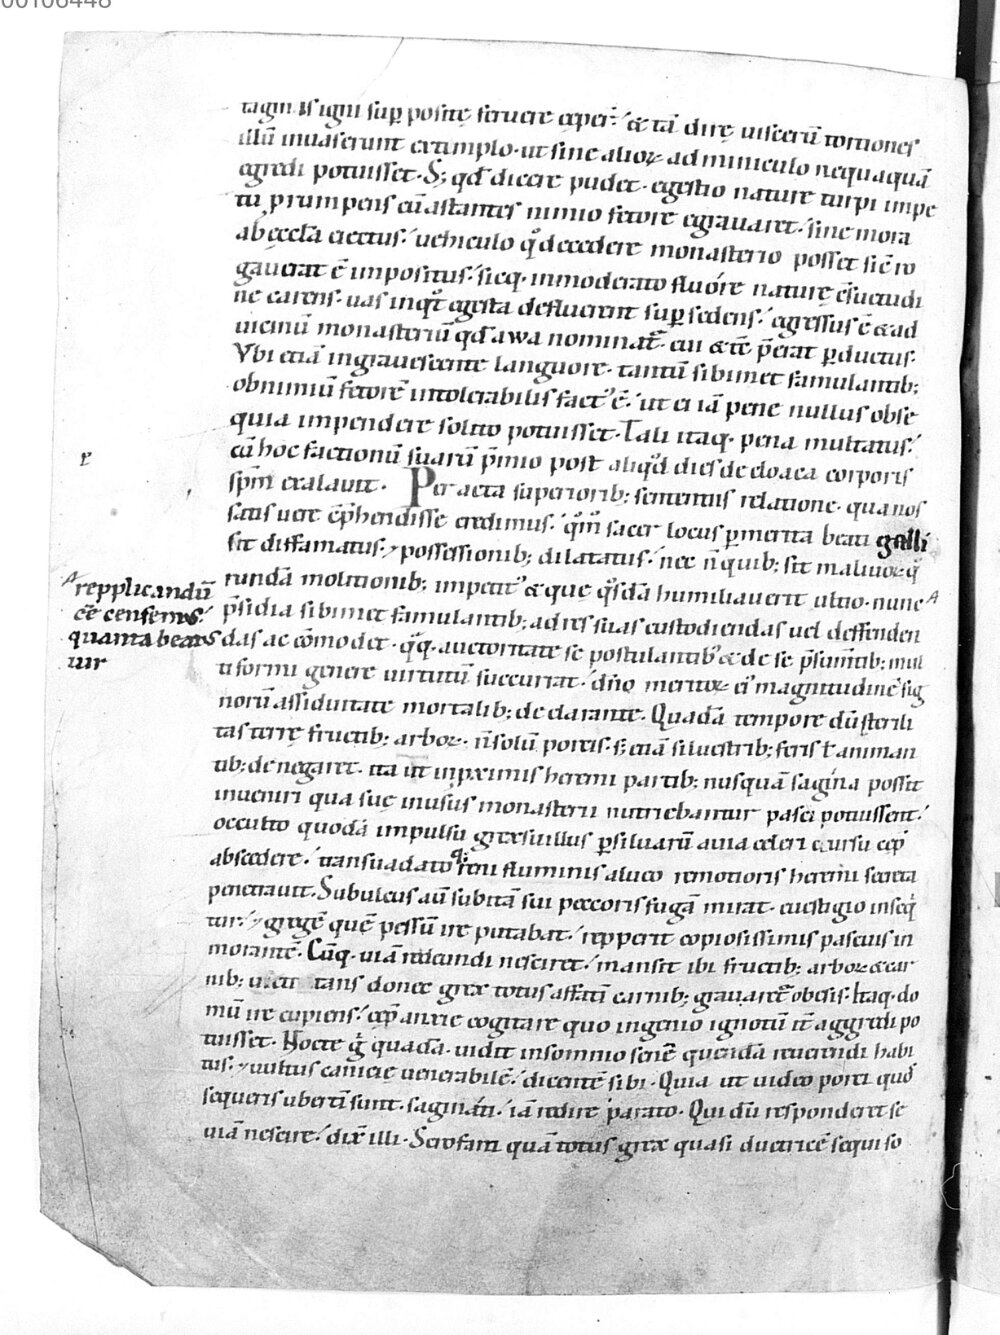 00106448
tagin isigni sup̱ positę feruere cęper̄· & tā dirę uiscerū tortiones
illū inuaserunt extimplo· ut sine alioꝝ adminiculo nequaquā
egredi potuisset· S; qđ dicere pudet· egestio nature turpi impe
tu prumpens cū astantes nimio fetore egrauaret· sine mora
ab ęccła eiectus· uehiculo q̊ decedere monasterio posset sic̄ ro
gauerat ē impositus· sicq· inmoderato fluore naturę c̄suetudi
ne carens· uas in qđ egesta defluerent sup̱ sedens· egressus ē & ad
uicinū monasteriū qđ awa nominat̄· cui & tc̄ p̄erat p̱ductus·
Vbi etiā ingrauescente languore· tantū sibimet famulantib;
ob nimiū fetorē intolerabilis fact᾿ ē· ut ei iā pene nullus obse
quia impendere solito potuisset· Tali itaq· pena multatus·
cū hoc factionū suarū p̄mio post aliq̊d dies de cloaca corporis
sp̄m exalauit· Per acta superiorib; sententiis relatione· qua nos
satis uere cp̄hendisse credimus· qm̄ sacer locus p̱ merita beati galli
sit diffamatus· ⁊ possessionib; dilatatus· nec ñ quib; sit maliuoꝝ q̄
rundā molitionib; impetit᾿ & que q̊sdā humiliauerit ultio· nunc
repplicandū
cē̄ censemus·
quanta beatus
uir
p̄sidia sibimet famulantib; ad res suas custodiendas uel deffenden
das accōmodet· q̄q· auctoritate se postulantib᾿ & de se p̄sumtib; mul
tiformi genere uirtutū succurrat· dño meritoꝝ ei᾿ magnitudinē sig
norū assiduitate mortalib; declarante· Quadā tempore dū sterili
tas terrę fructib; arboꝝ· ñ solū porcis· s; etiā siluestrib; feris ł animan
tib; denegaret· ita ut in p̱ximis heremi partib; nusquā sagina possit
inueniri qua suę in usus monasterii nutriebantur pasci potuissent·
occulto quodā impulsu grex suillus p̱ siluarū auia celeri cursu cęp̄
abscedere· transuadato q; reni fluminis alueo remotioris heremi secreta
penetrauit· Subulcus aū subitā sui peccoris fugā mirat̄· euestigio inseq̄
tur· ⁊ gregē quē pessū ire putabat· repperit copiosissimis pascuis in
morantē· Cūq· uiā redeundi nesciret· mansit ibi fructib; arboꝝ & car
nib; uictitans donec grex totus affatī carnib; grauaret̄ obesis· Itaq· do
mū ire cupiens· cęp̄ anxie cogitare quo ingenio ignotū it̄ aggredi po
tuisset· Nocte g̊ quadā· uidit insomnio senē quendā reuerendi habi
tus· ⁊ uultus canicie uenerabilē· dicentē sibi· Quia ut uideo porci quos
sequeris ubertī sunt· saginati· iā redire parato· Qui dū responderet se
uiā nescire· dix̄ illi· Scrofam quā totus grex quasi ductricē sequi so